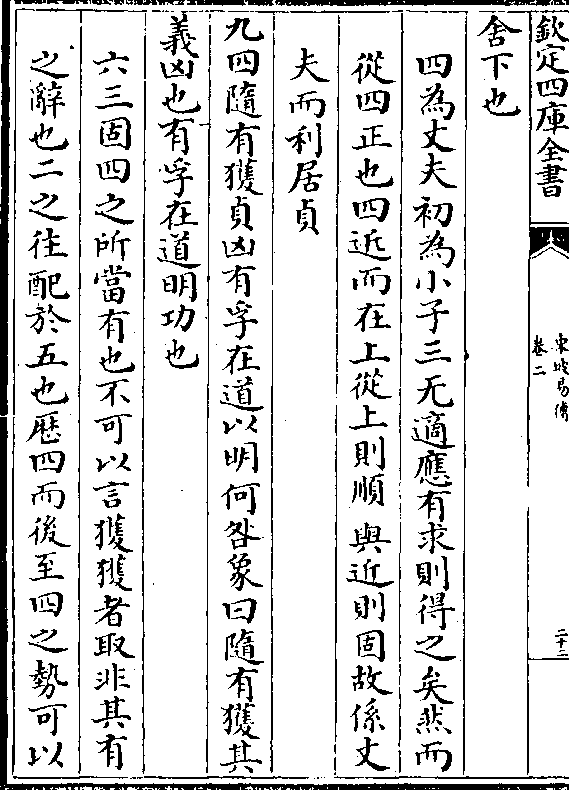 欽定四庫全書
東坡易傳
卷二
二十二
舍下也
四為丈夫初為小子三无適應有求則得之矣然而
從四正也四近而在上從上則順與近則固故係丈
夫而利居貞
九四隨有獲貞凶有孚在道以明何咎象曰隨有獲其
義凶也有孚在道明功也
六三固四之所當有也不可以言獲獲者取非其有
之辭也二之往配於五也歷四而後至四之勢可以